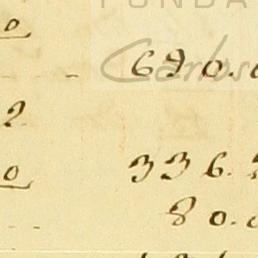 FUNDA
o
Carlos
690.
2
336.
o
80.